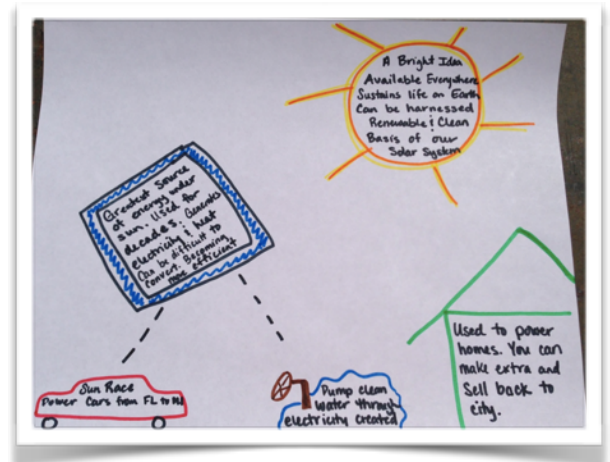 A Bright Idea
Available Everywhere
Sustains life on Earth
Can be harnessed
Renewable & Clean
Basis of our
Solar System
Greatest source
of energy under
sun. Used for
decades. Generates
electricity & heat
Can be difficult to
convert. Becoming
more efficient
Used to power
homes. You can
make extra and
Sell back to
city.
Sun Race
Power Cars from FL to
Pump clean
water through
electricity created